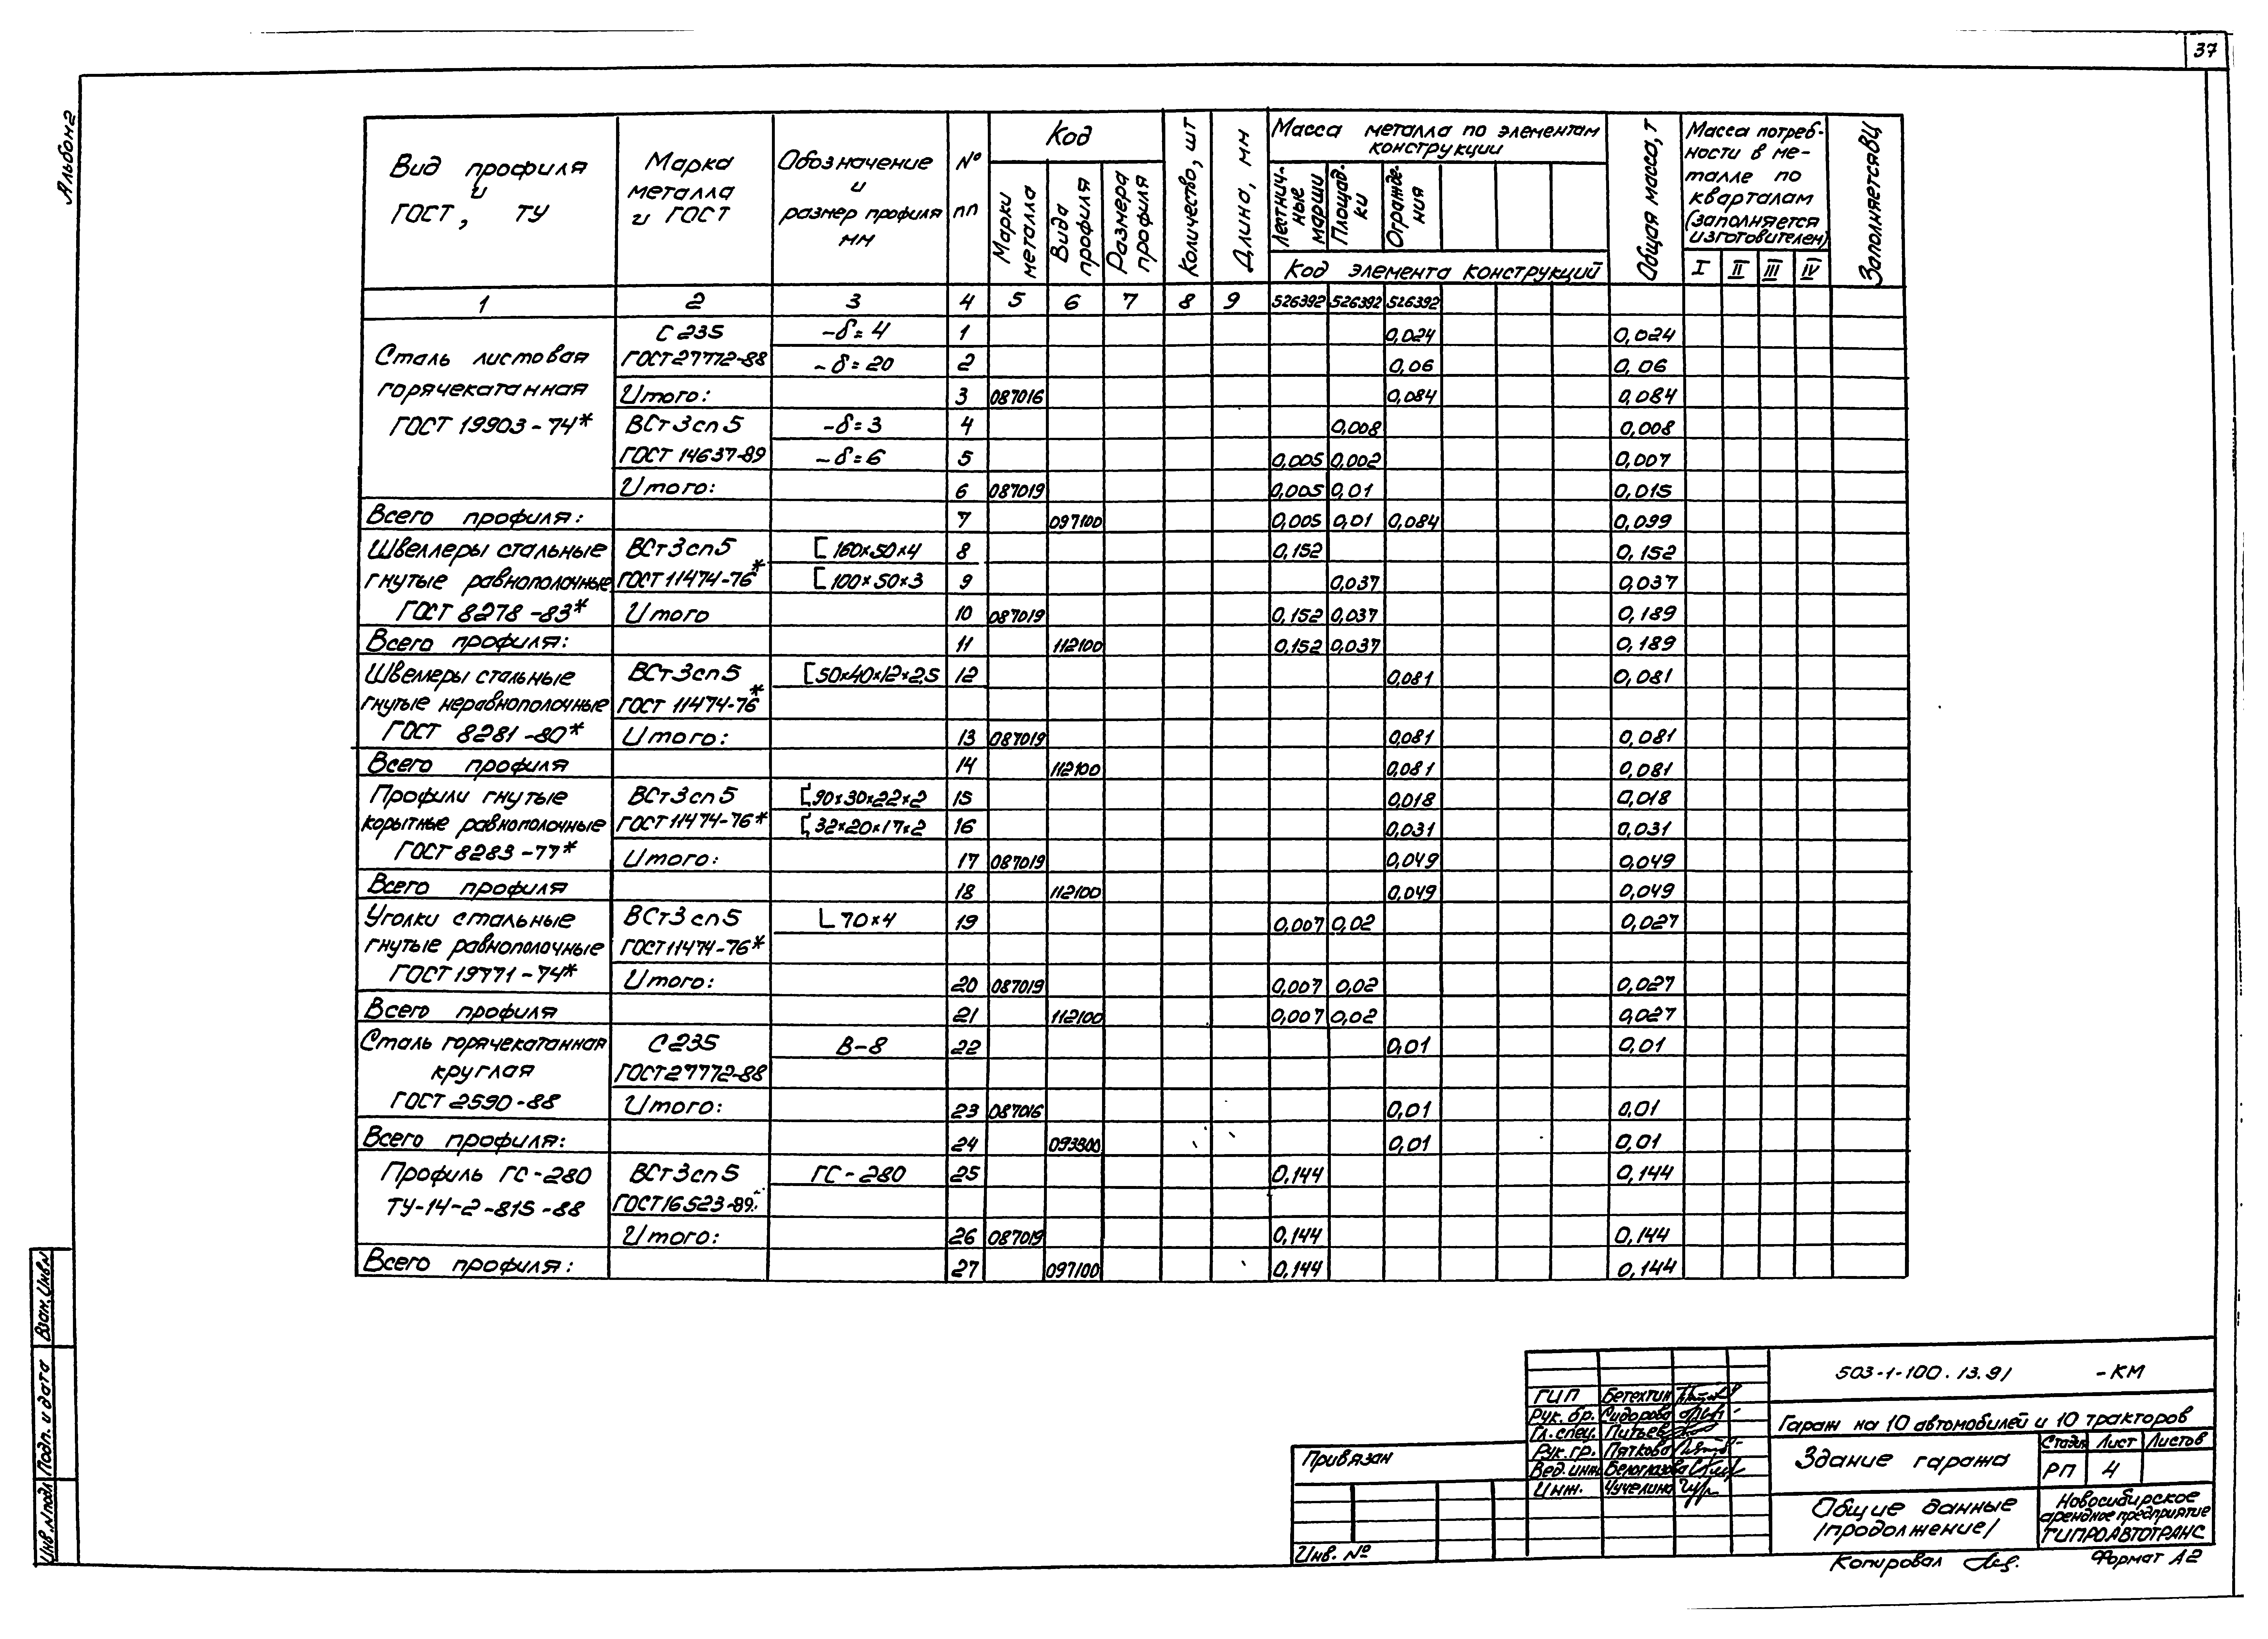 37
Альбом 2
Вид профиля и ГОСТ, ТУ
Марка металла и ГОСТ
Обозначение и размер профиля мм
№ пп
Код
Марки металла
Вида профиля
Размера профиля
Количество, шт
Длина, мм
Масса металла по элементам конструкции
Лестнич-ные марши
Площад-ки
Огражде-ния
Код элемента конструкций
Общая масса, т
Масса потреб-ности в ме-талле по кварталам (заполняется изготовителем)
I II III IV
Заполняется ВЦ
1 2 3 4 5 6 7 8 9 526392 526392 526392
С 235 -δ=4 1 0,024 0,024
Сталь листовая ГОСТ 27772-88 -δ=20 2 0,06 0,06
горячекатанная Итого: 3 087016 0,084 0,084
ГОСТ 19903-74* ВСт3сп5 -δ=3 4 0,008 0,008
ГОСТ 14637-89 -δ=6 5 0,005 0,002 0,007
Итого: 6 087019 0,005 0,01 0,015
Всего профиля: 7 097100 0,005 0,01 0,084 0,099
Швеллеры стальные ВСт3сп5 [160×50×4 8 0,152 0,152
гнутые равнополочные ГОСТ 11474-76* [100×50×3 9 0,037 0,037
ГОСТ 8278-83* Итого 10 087019 0,152 0,037 0,189
Всего профиля: 11 112100 0,152 0,037 0,189
Швеллеры стальные ВСт3сп5 [50×40×12×2,5 12 0,081 0,081
гнутые неравнополочные ГОСТ 11474-76*
ГОСТ 8281-80* Итого: 13 087019 0,081 0,081
Всего профиля 14 112100 0,081 0,081
Профили гнутые ВСт3сп5 [90×30×22×2 15 0,018 0,018
корытные равнополочные ГОСТ 11474-76* [32×20×17×2 16 0,031 0,031
ГОСТ 8283-77* Итого: 17 087019 0,049 0,049
Всего профиля 18 112100 0,049 0,049
Уголки стальные ВСт3сп5 L 70×4 19 0,007 0,02 0,027
гнутые равнополочные ГОСТ 11474-76*
ГОСТ 19771-74* Итого: 20 087019 0,007 0,02 0,027
Всего профиля 21 112100 0,007 0,02 0,027
Сталь горячекатанная С 235 В-8 22 0,01 0,01
круглая ГОСТ 27772-88
ГОСТ 2590-88 Итого: 23 087016 0,01 0,01
Всего профиля: 24 093300 0,01 0,01
Профиль ГС-280 ВСт3сп5 ГС-280 25 0,144 0,144
ТУ-14-2-815-88 ГОСТ 16523-89
Итого: 26 087019 0,144 0,144
Всего профиля: 27 097100 0,144 0,144
Взам. Инв.№
Подп. и дата
Инв.№подл
503-1-100.13.91 -КМ
Гараж на 10 автомобилей и 10 тракторов
ГИП Бетехтин
Рук. бр. Сидорова
Гл. спец. Питьев
Рук. гр. Пяткова
Вед. инж. Белоглазова
Инж. Чучелина
Здание гаража
Стадия Лист Листов
РП 4
Общие данные
/продолжение/
Новосибирское
арендное предприятие
ГИПРОАВТОТРАНС
Привязан
Инв. №
Копировал
Формат А2